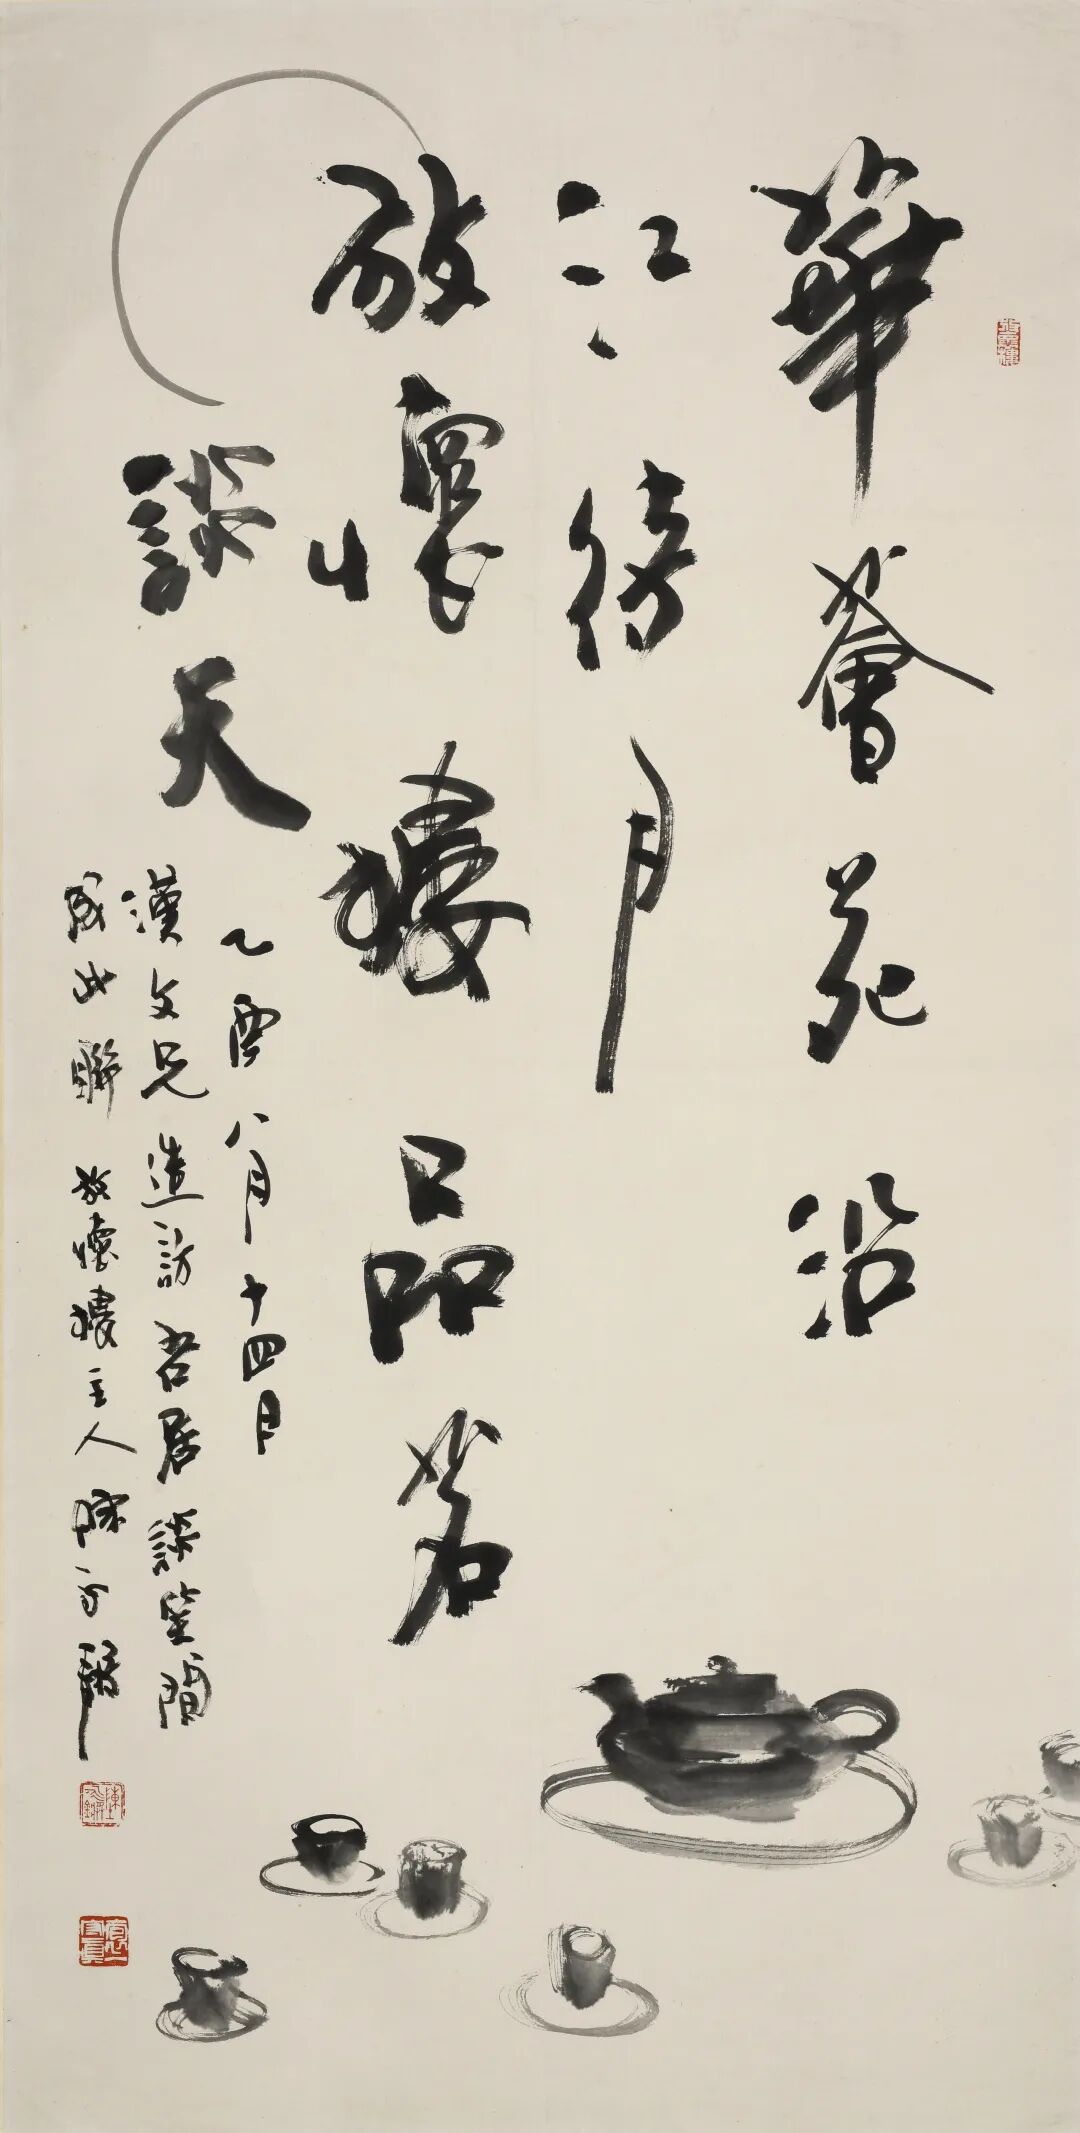 華薈苑沿
江待月
放懷樓品茗
談天
乙酉八月十四日
漢文兄造訪吾居談笑間
成此聯 放懷樓主人陳永鏘
放懷樓